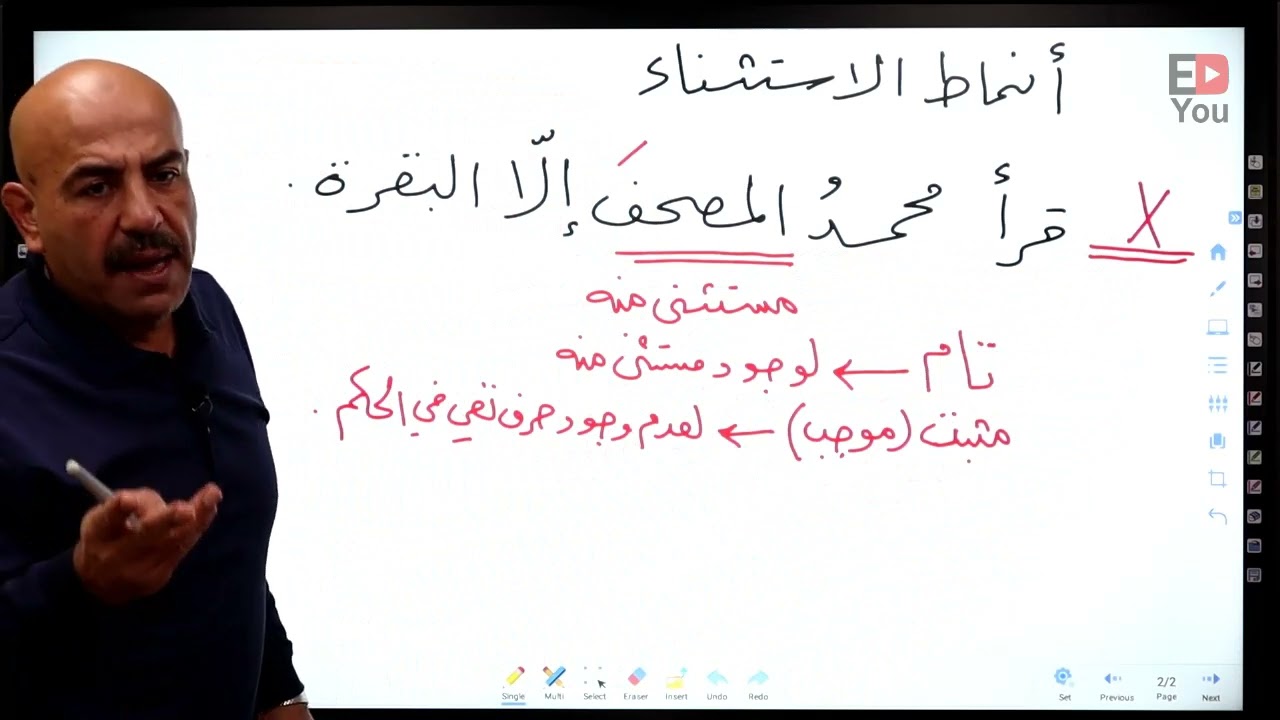 أنماط الاستثناء
ED
You
X قرأ محمدُ المصحفَ إلّا البقرة .
مستثنى منه
تام ← لوجود مستثنى منه
مثبت (موجب) ← لعدم وجود حرف نفي في الحكم .
Single Multi Select Eraser Insert Undo Redo
Set Previous 2/2 Page Next